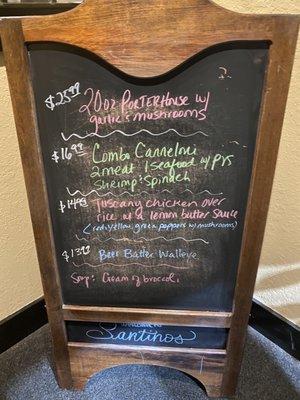 $25.99 20oz PORTERHOUSE w/
garlic & mushrooms
$16.99 Combo Canneloni
2 meat 1 seafood w/
shrimp & spinach
$14.95 Tuscany chicken over
rice w a lemon butter sauce
(red, yellow, green peppers w/ mushrooms)
Beer Batter Walleye
Soup: Cream of broccoli
Santinos